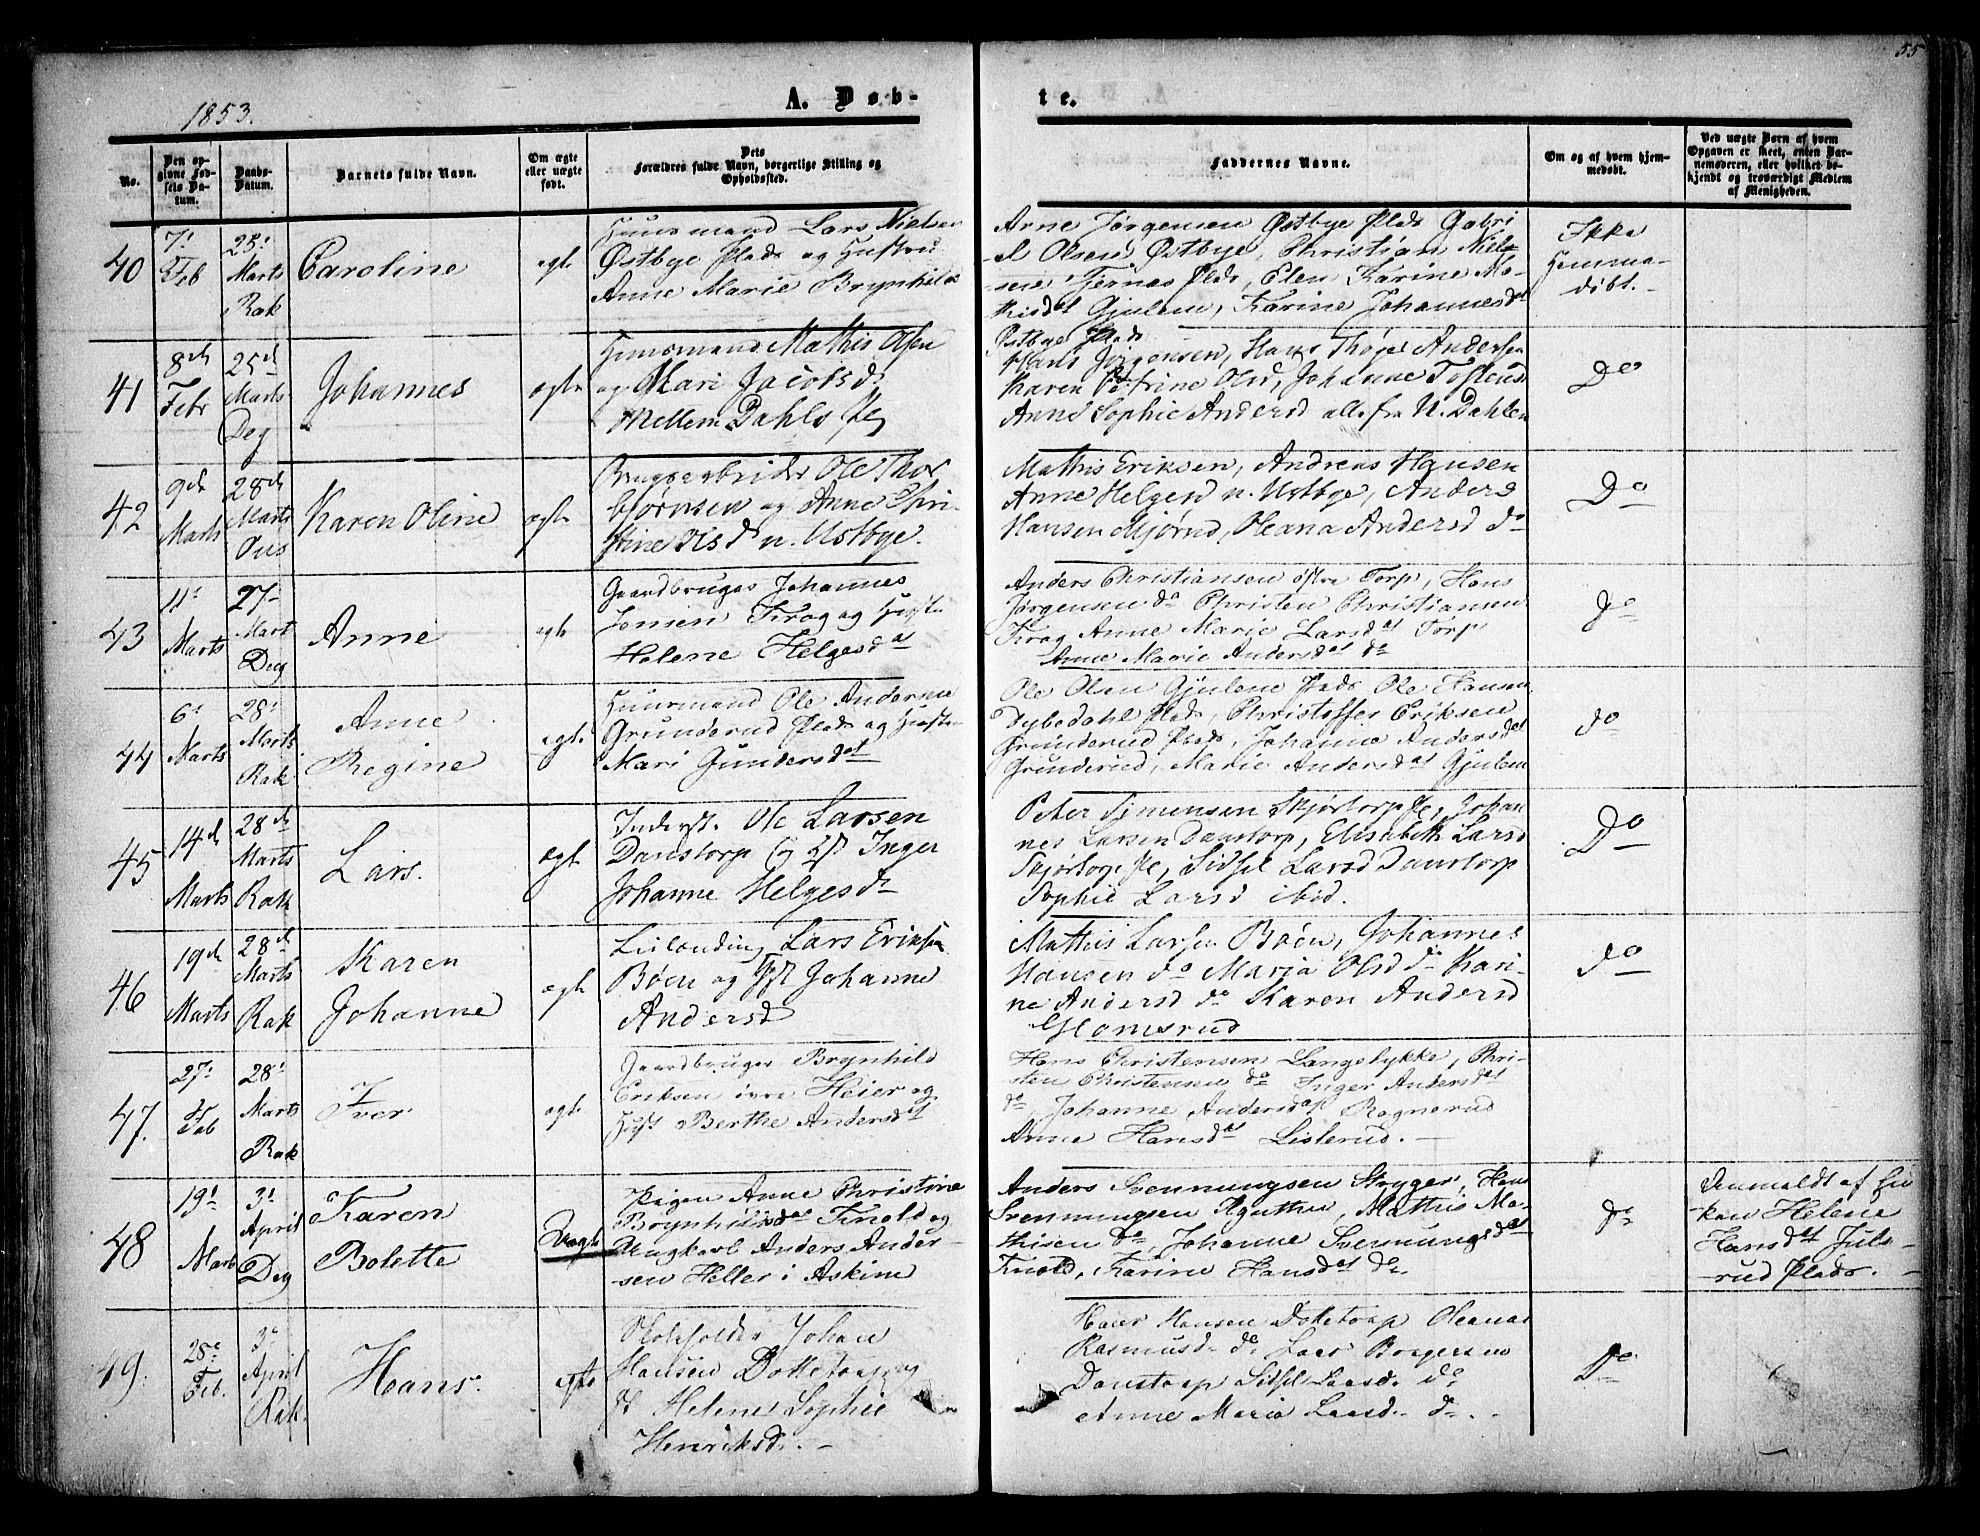 55
1853.
A. Døb-
te.
No.
Den op-
givne Fød-
sels Da-
tum.
Daabs-
Datum.
Barnets fulde Navn.
Om ægte
eller uægte
født.
Dets
Forældres fulde Navn, borgerlige Stilling og
Opholdssted.
Faddernes Navne.
Om og af hvem hjem-
medøbt.
Ved uægte Barn af hvem
Opgaven er skeet, enten Bar-
nemoderen, eller hvilket be-
kjendt og troværdigt Medlem
af Menigheden.
40
7
Feb
25
Marts
Rak
Caroline
egte
Huusmand Lars Nielsen
Østbye Plads og Hustru
Anne Marie Brynhilds
Arne Jørgensen Østbye Plads Gabri
el Olsen Østbye, Christian Niel-
sen Tjernæs Plads, Elen Karine Ma-
thisdat Gjulem, Karine Johannesdat
Østbye Plads
Ikke
Hemma-
døbt.
41
8de
Febr
25de
Marts
Deg
Johannes
ægte
Huusmand Mathis Olsen
og Mari Jacobsd
Mellem Dahls Pl
Hans Jørgensen, Hans Thøger Andersen
Karen Petrine Olsd, Johanne Tostensd
Anne Sophie Andersd alle fra N. Dahlen
Do
42
9de
Marts
28de
Marts
Ous
Karen Oline
ægte
Brugsarbeider Ole Thor
bjørnsen og Anne Chri
stine Olsd n. Ustbye.
Mathis Eriksen, Andreas Hansen
Anne Helgesd n. Ustbye, Anders
Hansen Mjørud, Oleana Andersd do
Do
43
11
Marts
27
Mart
Deg
Anne
egte
Gaardbruger Johannes
Jensen Krog og Hustr
Helene Helgesdat
Anders Christiansen østre Torp, Hans
Jørgensen do Christen Christiansen
Krog Anne Marie Larsdat Torp
Anne Marie Andersdat do
do
44
6
Marts
28
Marts
Rak
Anne
Regine
egte
Huusmand Ole Andersen
Grunderud Plads og Hustr
Mari Gundersdat
Ole Olsen Gjulem Plads Ole Hansen
Dybedahl Plads, Christoffer Eriksen
Grunderud Plads, Johanne Andersdat
Grunderud, Marie Andersdat Gjulem
do
45
14de
Marts
28de
Marts
Rak
Lars.
ægte
Inderst. Ole Larsen
Danstorp og Hst Inger
Johanne Helgesdr
Peter Simensen Skjørtorp Pl, Johan
nes Larsen Danstorp, Elisabeth Larsd
Skjørtorp Pl, Sidsel Larsd Danstorp
Sophie Larsd ibid.
Do
46
19de
Marts
28de
Marts
Rak
Karen
Johanne
ægte
Leilænding Lars Eriksen
Bøen og Hst Johanne
Andersd
Mathis Larsen Bøen, Johannes
Hansen do Maria Olsd do Kari-
ne Andersd do Karen Andersd
Glomsrud
do
47.
27
Feb
28
Marts
Rak
Iver
egte
Gaardbruger Brynhild
Eriksen øvre Heier og
Hust Berthe Andersdat
Hans Christensen Langelykke, Chri-
sten Christensen do Inger Andersdat
do, Johanne Andersdat Ragnerud
Anne Hansdat Listerud.
48
19
Marts
3
April
Deg
Karen
Bolette
Uægte
Pigen Anne Christine
Brynhildsdat Knold og
Ungkarl Anders Ander-
sen Heller i Askim
Anders Svenningsen Stryger, Hans
Svenningsen Aguthu, Mathis Ma-
thisen do, Johanne Svenningsdat
Knold, Karine Hansdat do
do
Anmeldt af En
ken Helene
Hansdat Juls-
rud Plads.
49.
28
Feb.
3
April
Rak
Hans
egte
Skoleholder Johan
Hansen Dokketorp og
H Helene Sophie
Henriksd.
Heier Hansen Doketorp Oleana
Rasmusd. do Lars Borgersen
Danstorp Sidsel Larsd. do
Anne Maria Larsd. do.
Do